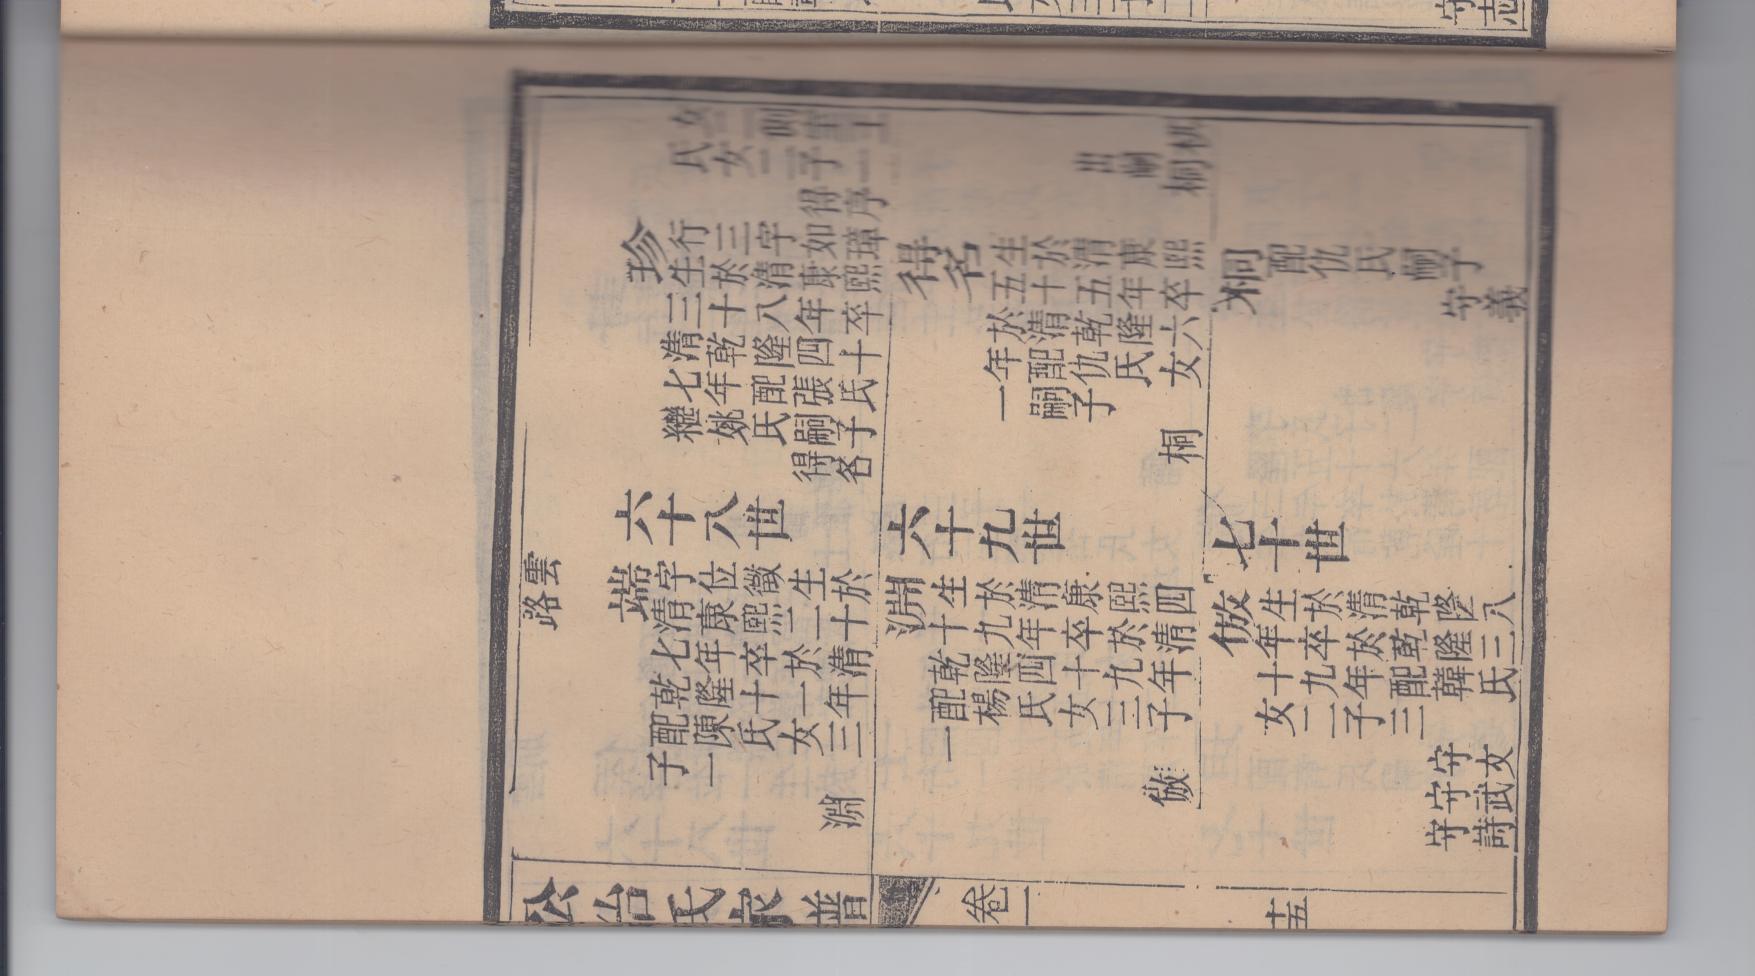 女二側室王
氏女二子二
得序
珍
行三字如璋
生於清康熙
三十八年卒
清乾隆四十
七年配張氏
繼姚氏嗣子
得名
六十八世
雲路
端
字位徵生於
清康熙二十
七年卒於清
乾隆十一年
配陳氏女三
子一
淵
棋
出嗣桐
得名
生於清康熙
五十五年卒
於清乾隆六
年配仇氏女
一嗣子
桐
六十九世
淵
生於清康熙四
十九年卒於清
乾隆四十九年
配楊氏女三子
一
倣
桐
配仇氏嗣子
守義
七十世
倣
生於清乾隆八
年卒於乾隆三
十九年配韓氏
女二子三
守文
守武
守詩
公冶氏家譜
卷一
十五
守志